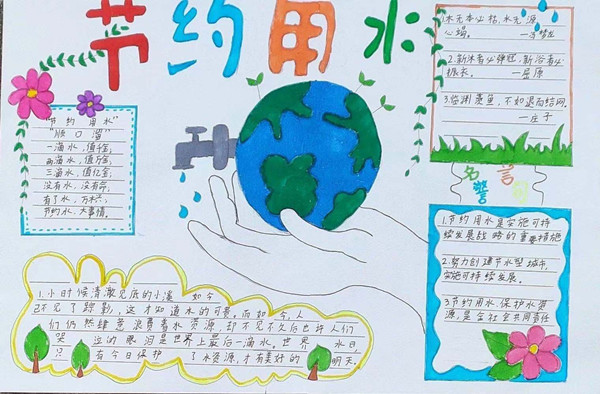 节约用水
"节约用水"
"顺口溜"
一滴水,值千金;
两滴水,值万金;
三滴水,值亿金;
没有水,没有命,
有了水,万物
节约水,大事情。
1.水无本必枯,水无源
必竭。
2.新沐者必弹冠,新浴者必
振衣。 —屈原
3.临渊羡鱼,不如退而结网
—庄子
名言
警句
1.节约用水是实施可持
续发展战略的重要措施
2.努力创建节水型城市,
实施可持续发展。
3.节约用水.保护水资
源,是全社会共同责任
1.小时候清澈见底的小溪 如今
已不见了踪影,这才知道水的可贵,而如今,人
们仍然肆意浪费着水资源,却不见不久后也许人们
哭泣的眼泪是世界上最后一滴水。世界水日
只有今日保护了水资源,才有美好的明天。